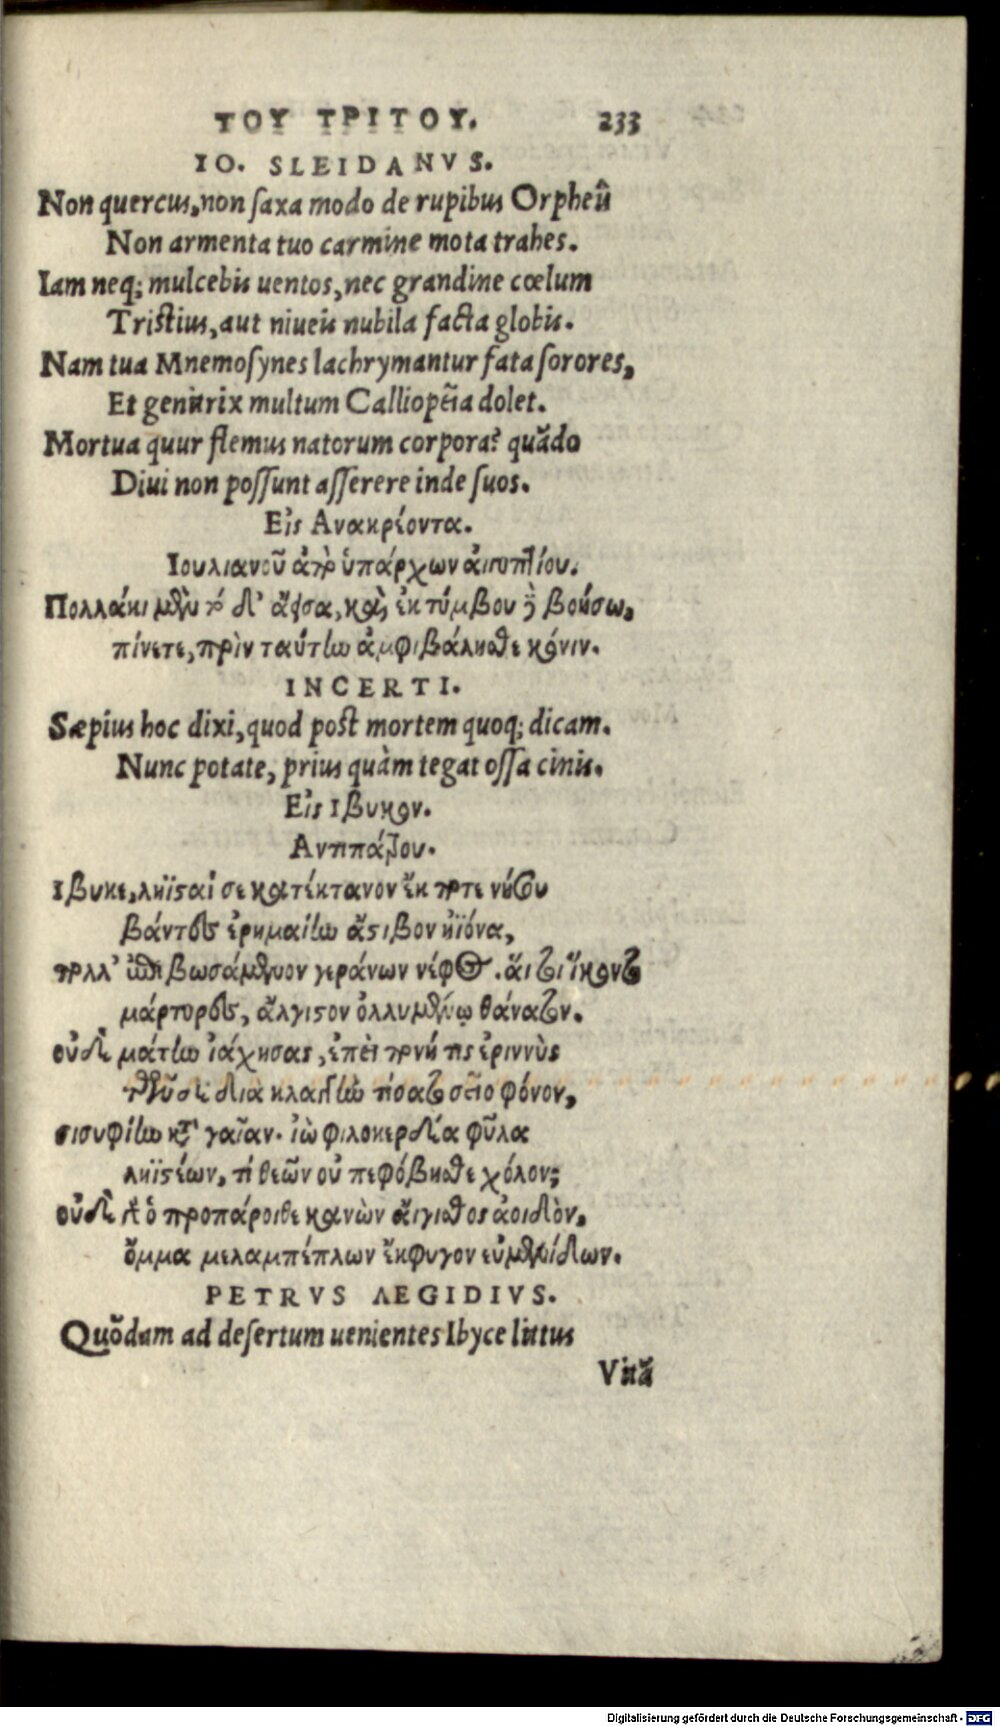 ΤΟΥ ΤΡΙΤΟΥ. 233
IO. SLEIDANVS.
Non quercus, non ſaxa modo de rupibus Orpheû
Non armenta tuo carmine mota trahes.
Iam neq; mulcebis uentos, nec grandine cœlum
Triſtius, aut niueis nubila facta globis.
Nam tua Mnemoſynes lachrymantur fata ſorores,
Et genitrix multum Calliopēia dolet.
Mortua quur flemus natorum corpora? quādo
Diui non poſſunt aſſerere inde ſuos.
Εἰς Ανακρέοντα.
Ιουλιανοῦ ἀπὸ ὑπάρχων αἰγυπτίου.
Πολλάκι μὲν τό δ' ἄεισα, καὶ ἐκ τύμβου δὲ βοήσω,
πίνετε, πρὶν ταύτην ἀμφιβάλησθε κόνιν.
INCERTI.
Sæpius hoc dixi, quod poſt mortem quoq; dicam.
Nunc potate, prius quàm tegat oſſa cinis.
Εἰς Ιβυκον.
Αντιπάτρου.
Ιβυκε, ληϊσταί σε κατέκτανον ἔκ ποτε νήσου
βάντες ἐρημαίην ἄστιβον ἠϊόνα,
πολλ' ἐπιβωσάμενον γεράνων νέφος. ἅι τοι ἵκοντο
μάρτυρες, ἄλγιστον ὀλλυμένῳ θάνατον.
οὐδὲ μάτην ἰάχησας, ἐπεὶ ποινή τις ἐριννὺς
τῶνδε διὰ κλαγγὴν τίσατο σεῖο φόνον,
σισυφίην κατὰ γαῖαν. ἰὼ φιλοκερδέα φῦλα
ληϊστέων, τί θεῶν οὐ πεφόβησθε χόλον;
οὐδὲ γὰρ ὁ προπάροιθε κανὼν ἄιγισθος ἀοιδὸν,
ὄμμα μελαμπέπλων ἔκφυγον εὐμενίδων.
PETRVS AEGIDIVS.
Quōdam ad deſertum uenientes Ibyce littus
Vitā
Digitalisierung gefördert durch die Deutsche Forschungsgemeinschaft - DFG